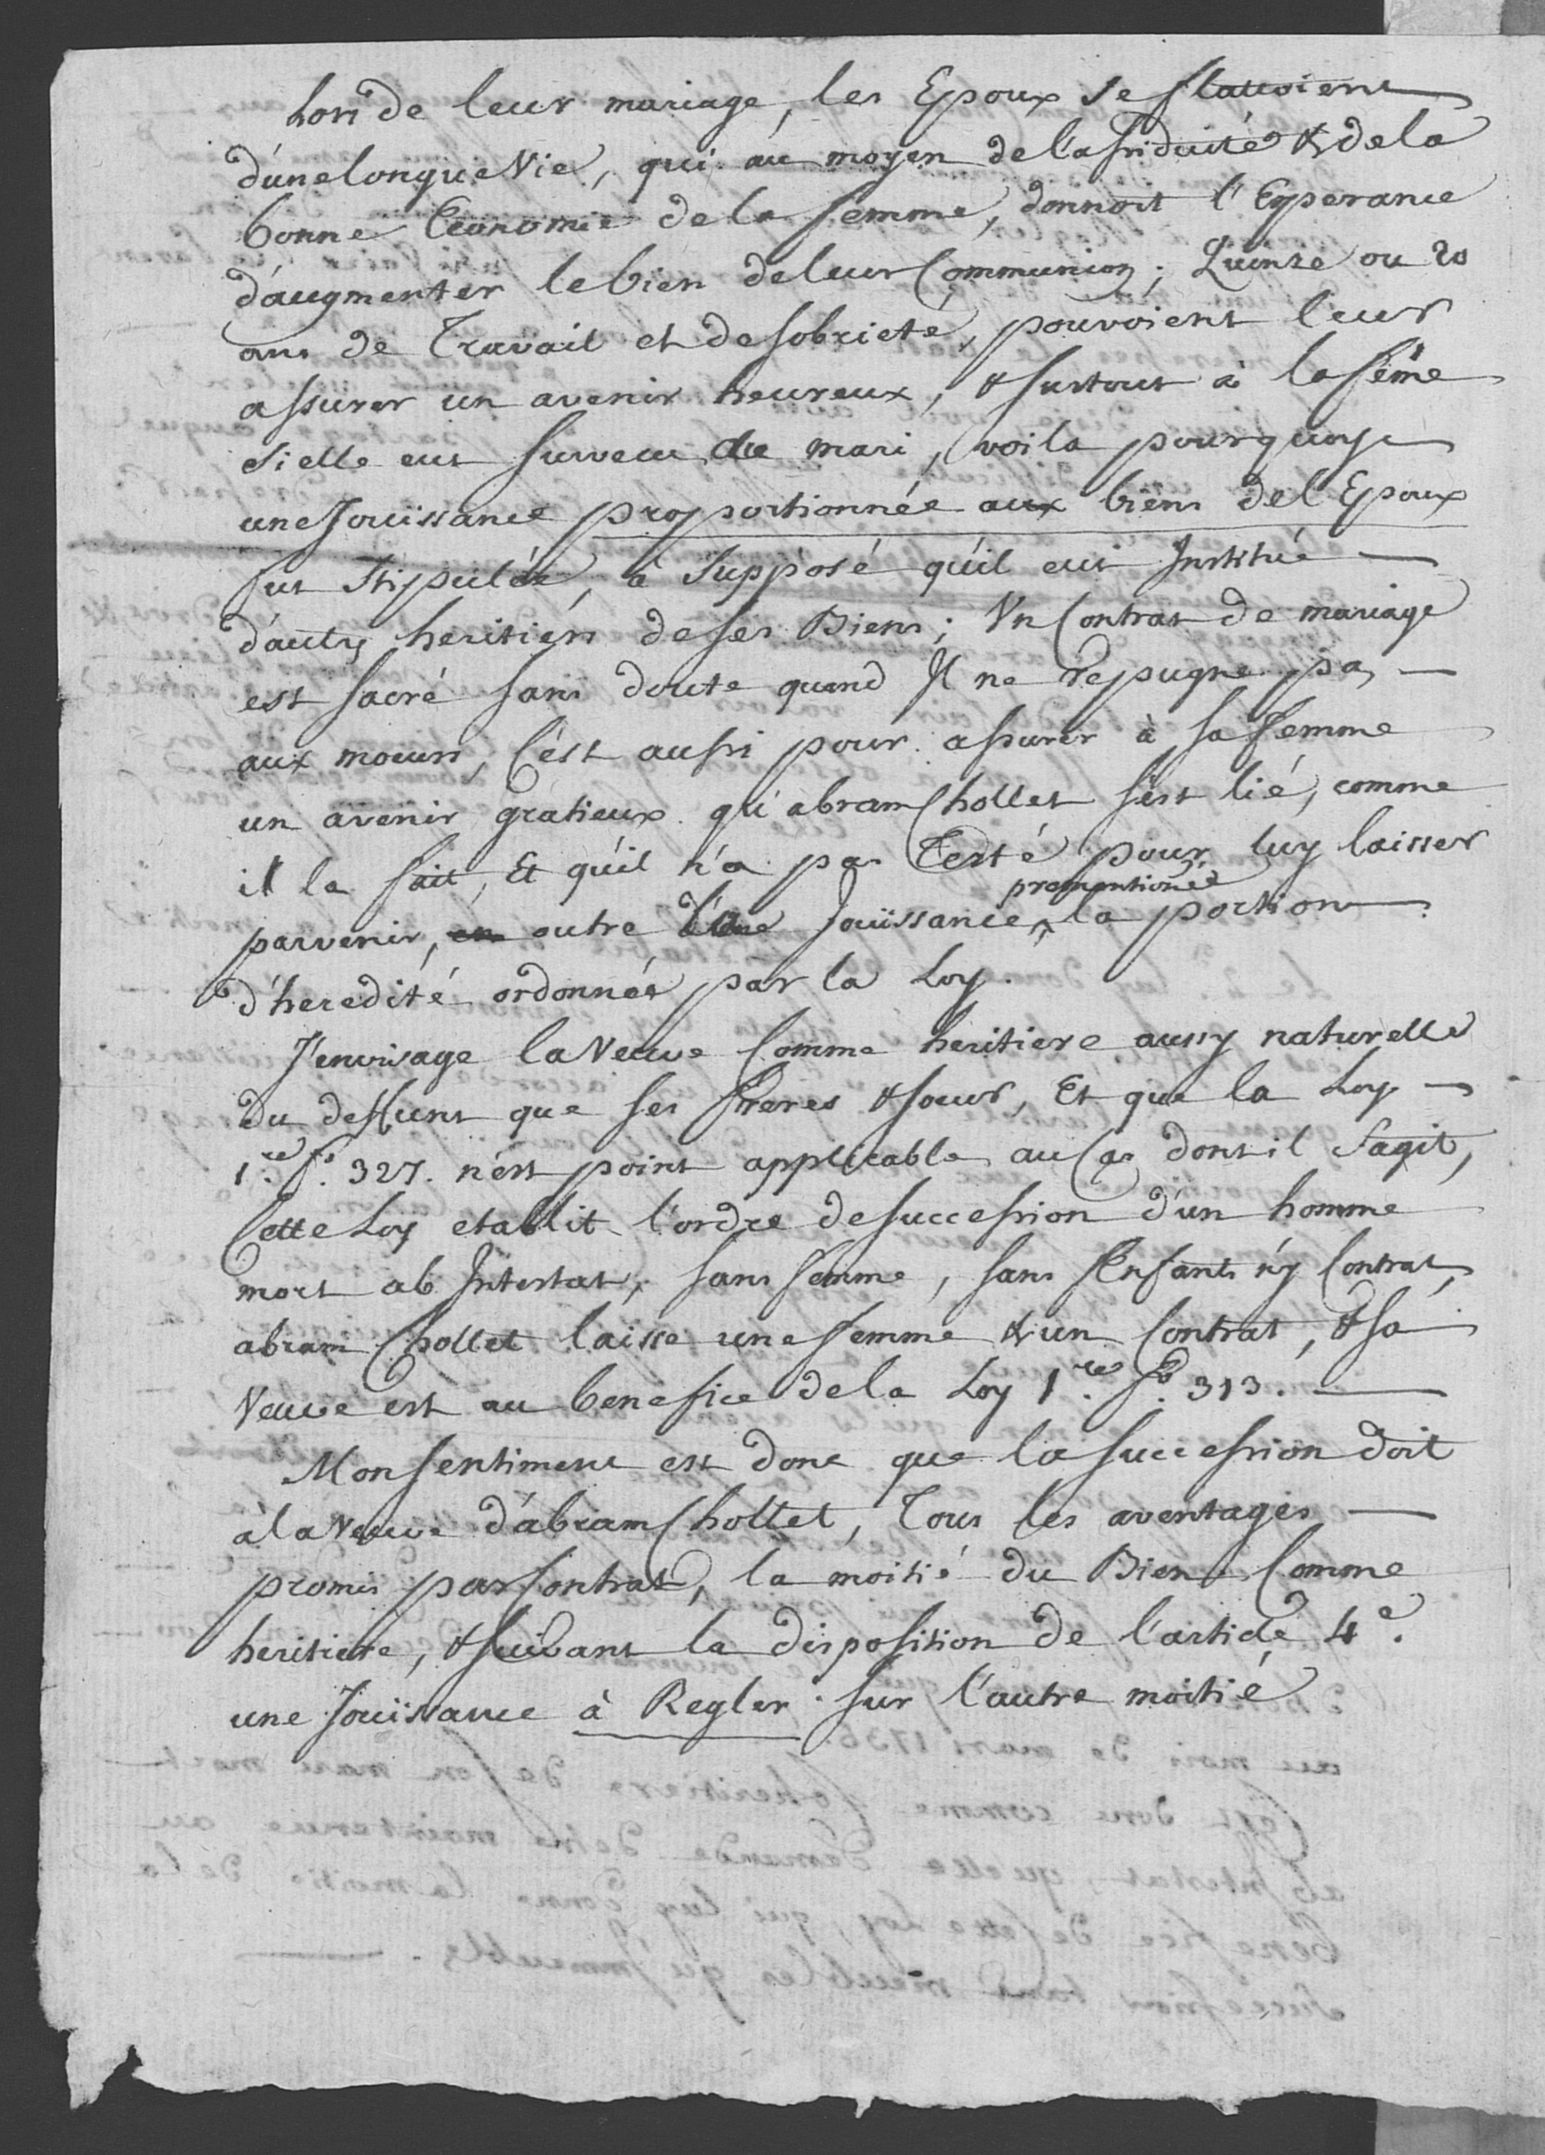 Lors de leur mariage, les Epoux se flattoient
d'une longue Vie, qui au moyen de l'assiduité & de la
bonne Economie de la femme, donnoit l'Esperance
d'augmenter le bien de leur Communion; Quinze ou 20
ans de Travail et de sobrieté, pouvoient leur
assurer un avenir heureux, & surtout à la feme
si elle eut survecu au mari, voila pourquoy
une Jouissance proportionnée aux biens de l'Epoux
fut Stipulée, à Supposé qu'il eut Institué
d'autrs heritiers de ses Biens; Un Contrat de mariage
est sacré sans doute quand Il ne repugne pas
aux moeurs, C'est aussi pour assurer à sa femme
un avenir gratieux qu'abram Chollet s'est lié, comme
il la fait, Et qu'il n'a pas Testé pour luy laisser
parvenir, en outre d'une Jouissance prementionée la portion
d'heredité ordonnée par la Loy.
J'envisage la Veuve Comme heritiere aussy naturelle
du deffunt que ses freres & soeur, Et que la Loy
1.re f.o 327. n'est point applicable au Cas dont il s'agit,
Cette Loy etablit l'ordre de succession d'un homme
mort ab Intestat, sans femme, sans Enfants n'y Contrat,
abram Chollet laisse une femme & un Contrat, & sa
Veuve est au benefice de la Loy 1.re f.o 313.
Mon sentiment est donc que la succession doit
à la Veuve d'abram Chollet, Tous les aventages
promis par Contrat, la moitié du Bien Comme
heritiere, & suivant la disposition de l'article 4.e
une Jouissance à Regler sur l'autre moitié